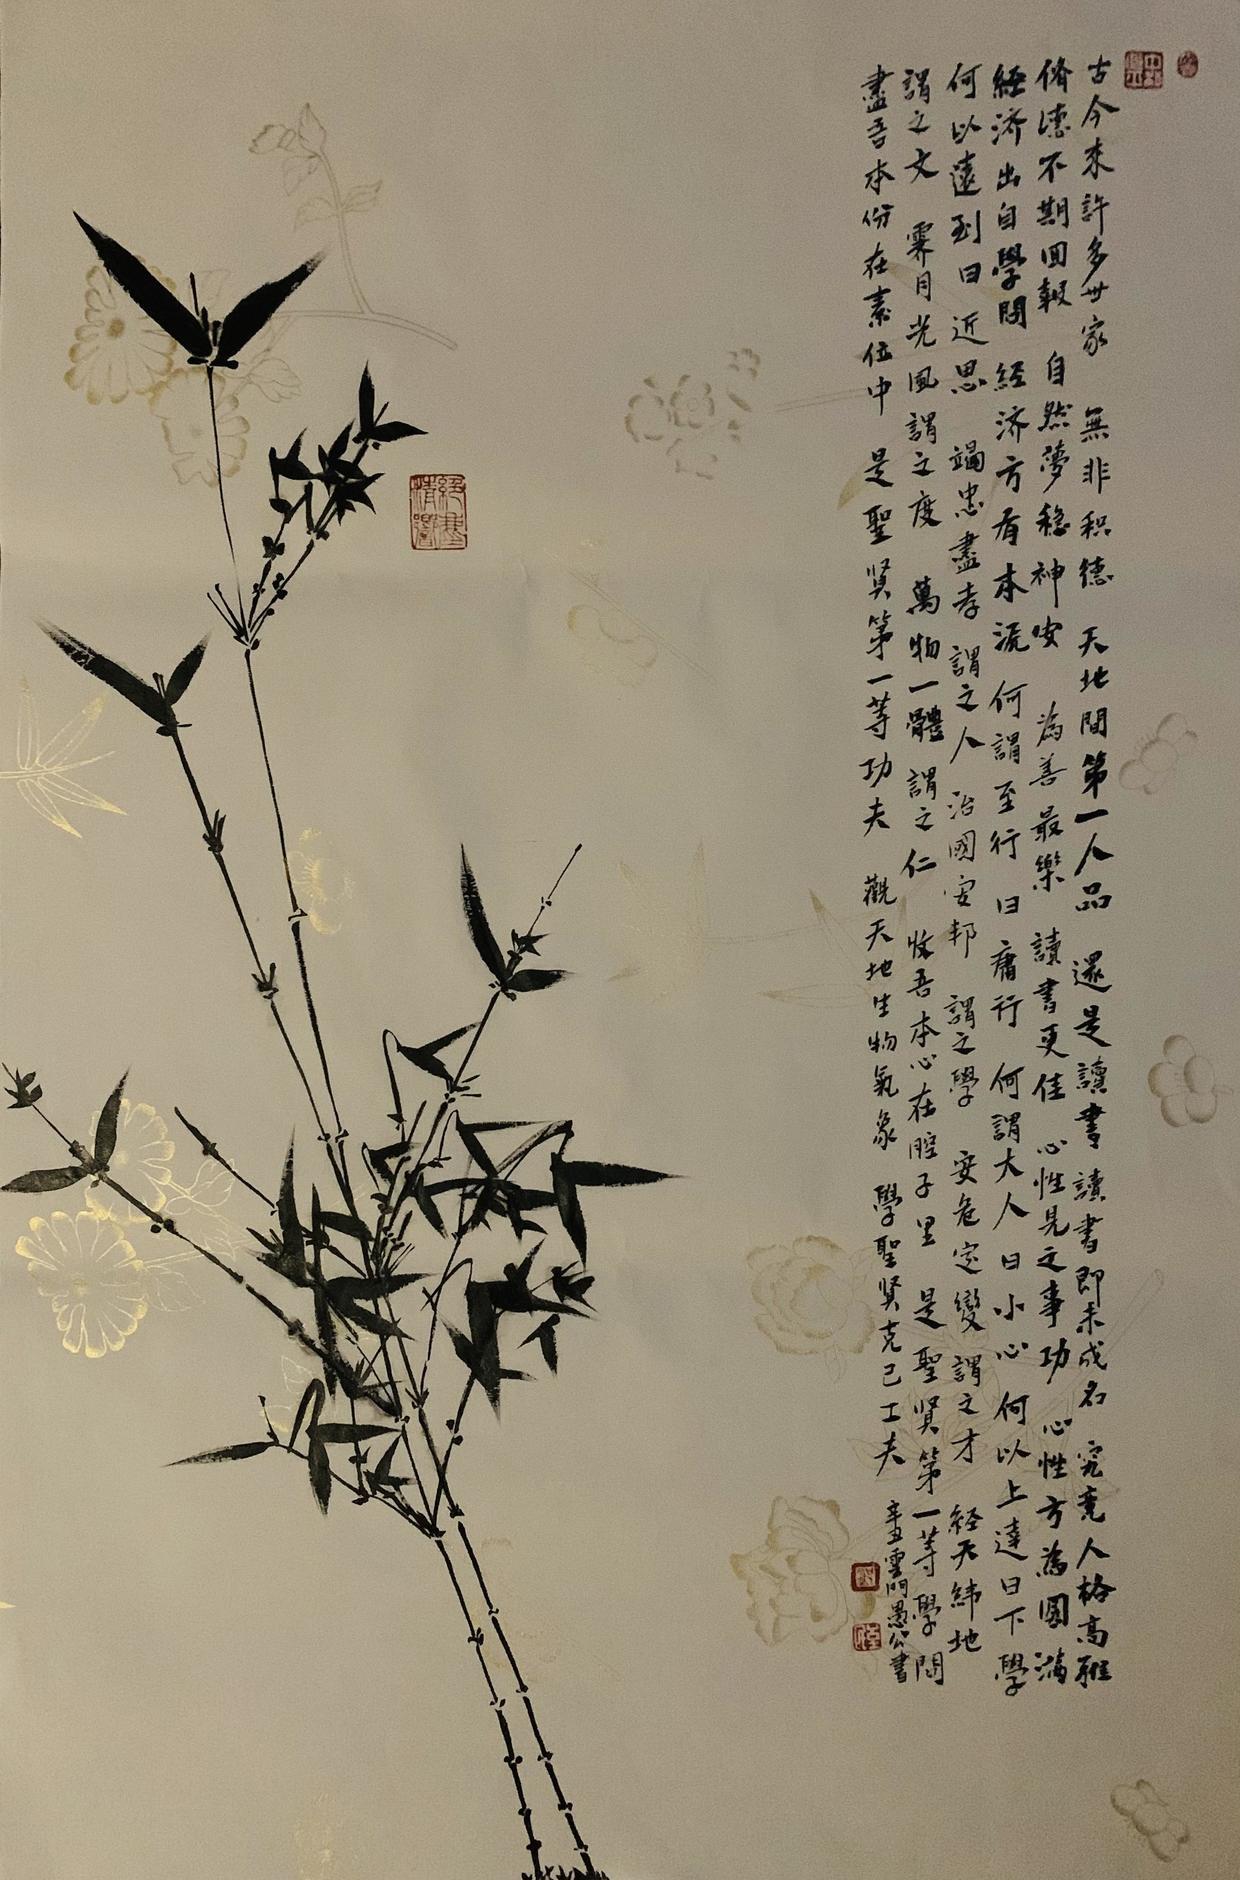 古今来許多世家 無非积德 天地間第一人品 還是讀書 讀書即未成名 究竟人格高雅
脩德不期回報 自然夢穩神安 為善最樂 讀書更佳 心性見之事功 心性方為圆满
經济出自學問 经济方有本流 何謂至行 曰庸行 何謂大人 曰小心 何以上達 曰下學
何以遠到 曰近思 竭忠盡孝 謂之人 治國安邦 謂之學 安危定變 謂之才 経天緯地
謂之文 霽月光風 謂之度 萬物一體 謂之仁 收吾本心在腔子里 是聖賢第一等學問
盡吾本份在素位中 是聖賢第一等功夫 觀天地生物氣象 學聖賢克己工夫 辛丑雲門愚公書